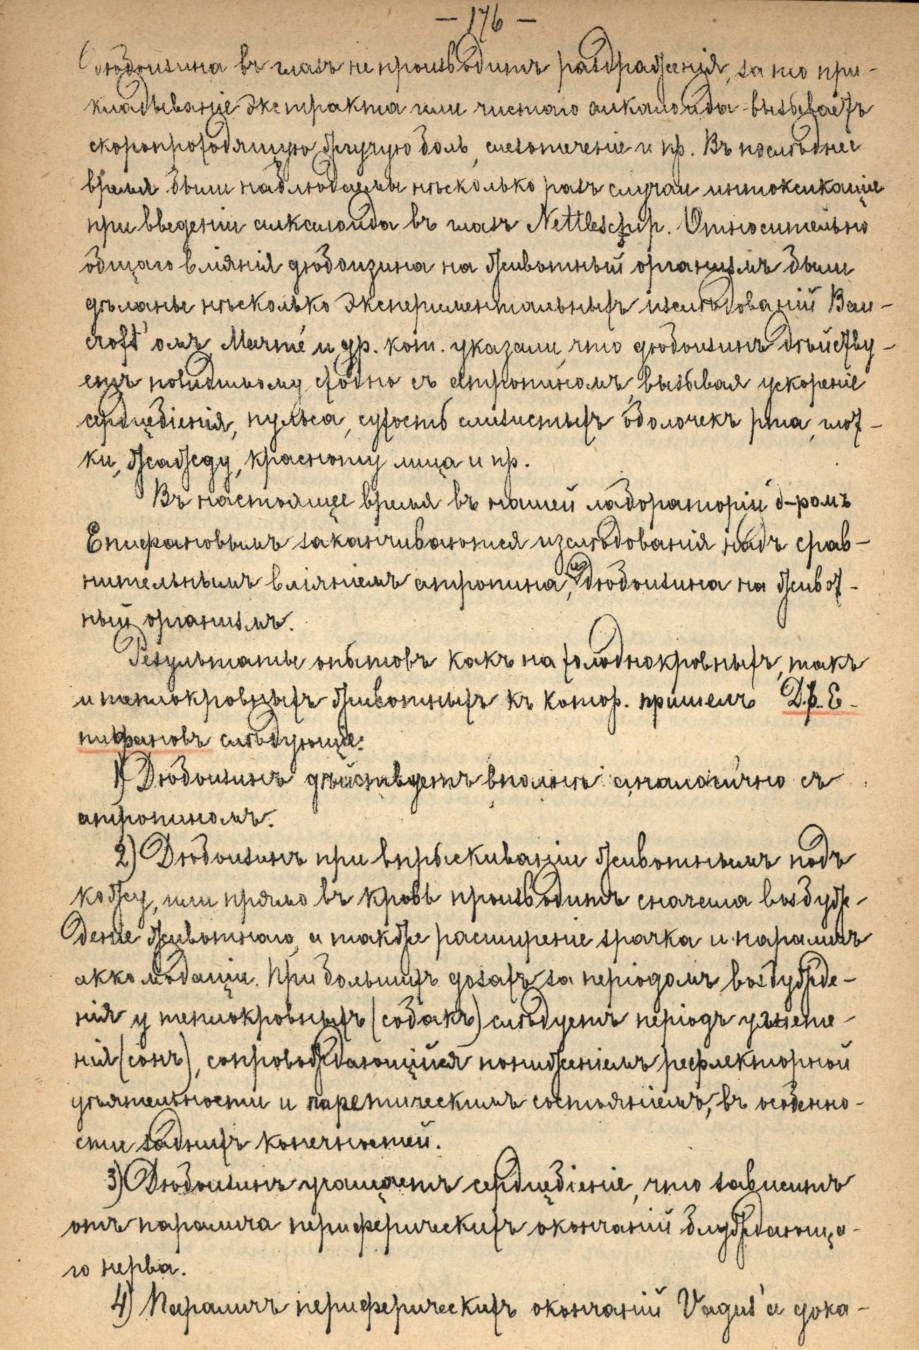 — 176 —
дюбоизина въ глазъ не производитъ раздраженія, за то при-
кладываніе экстракта или чистаго алкалоида вызываетъ
скоропроходящую жгучую боль, слезотеченіе и пр. Въ послѣднее
время были наблюдаемы нѣсколько разъ случаи интоксикаціи
при введеніи алкалоида въ глазъ Nettleschip. Относительно
общаго вліянія дюбоизина на животный организмъ были
дѣланы нѣсколько экспериментальныхъ изслѣдованій Ban-
croft'омъ Marmé и др. кот. указали, что дюбоизинъ дѣйству-
етъ повидимому сходно съ атропиномъ, вызывая ускореніе
сердцебіенія, пульса, сухость слизистыхъ оболочекъ рта, глот-
ки, жажду, красноту лица и пр.
Въ настоящее время въ нашей лабораторіи д-ромъ
Епифановымъ заканчиваются изслѣдованія надъ срав-
нительнымъ вліяніемъ атропина, и дюбоизина на живот-
ный организмъ.
Результаты опытовъ какъ на холоднокровныхъ, такъ
и теплокровныхъ животныхъ къ котор. пришелъ Д.р. Е-
пифановъ слѣдующіе:
1) Дюбоизинъ дѣйствуетъ вполнѣ аналогично съ
атропиномъ.
2) Дюбоизинъ при впрыскиваніи животнымъ подъ
кожу, или прямо въ кровь производитъ сначала возбуж-
деніе животнаго, а также расширеніе зрачка и параличъ
аккомодаціи. При большихъ дозахъ за періодомъ возбужде-
нія у теплокровныхъ (собакъ) слѣдуетъ періодъ угнете-
нія (сонъ), сопровождающійся пониженіемъ рефлекторной
дѣятельности и паретическимъ состояніемъ, въ особенно-
сти заднихъ конечностей.
3) Дюбоизинъ учащаетъ сердцебіеніе, что зависитъ
отъ паралича периферическихъ окончаній блуждающа-
го нерва.
4) Параличъ периферическихъ окончаній Vagus'a дока-